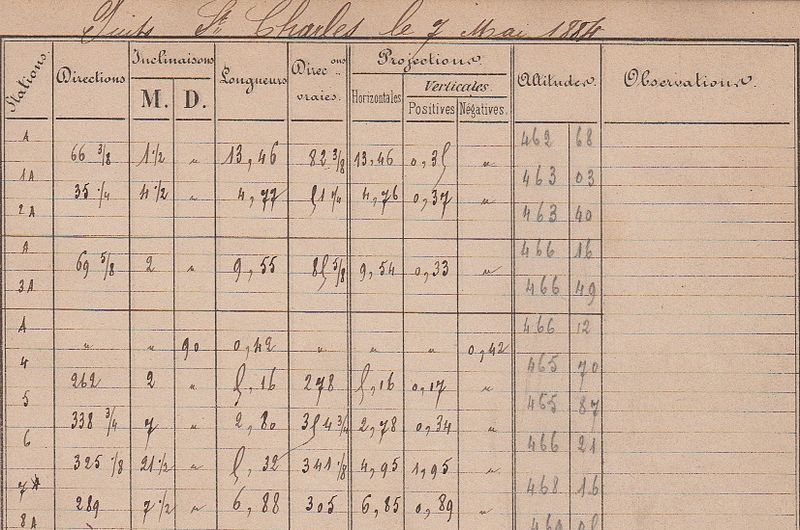 Puits St Charles le 7 Mai 1884
Stations. Directions Inclinaisons M. D. Longueurs Direc.ons vraies. Projections. Horizontales Verticales Positives Négatives. Altitudes. Observations.
A 462 68
66 3/8 1 1/2 " 13,46 82 3/8 13,46 0,35 "
1A 463 03
35 1/4 4 1/2 " 4,77 51 1/4 4,76 0,37 "
2A 463 40
A 466 16
69 5/8 2 " 9,55 85 5/8 9,54 0,33 "
3A 466 49
A 466 12
" " 90 0,42 " " " 0,42
4 465 70
262 2 " 5,16 278 5,16 0,17 "
5 465 87
338 3/4 7 " 2,80 354 3/4 2,78 0,34 "
6 466 21
325 1/8 21 1/2 " 5,32 341 1/8 4,95 1,95 "
7A 468 16
289 7 1/2 " 6,88 305 6,85 0,89 "
8A 469 05